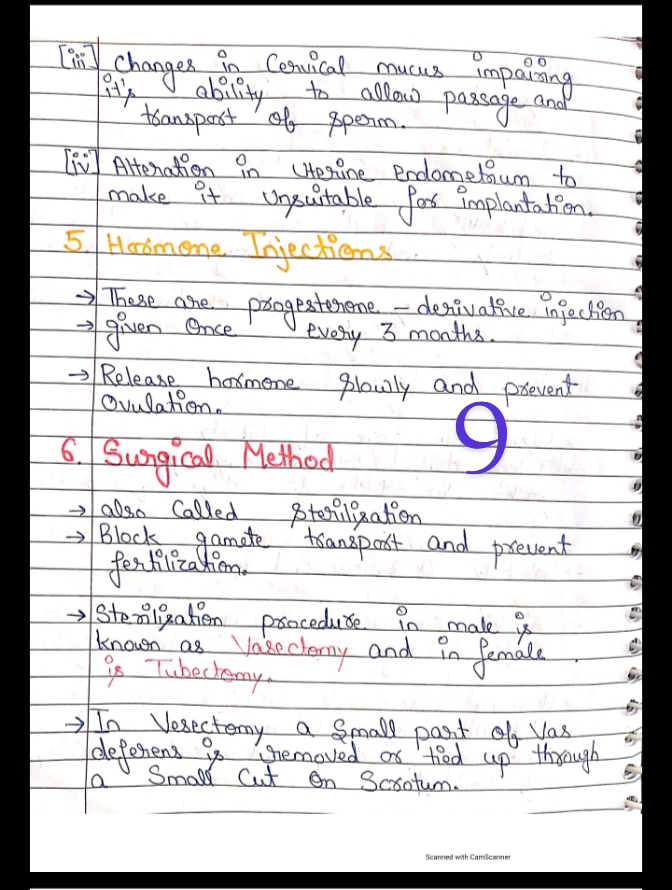 [iii] Changes in Cervical mucus impairing
it's ability to allow passage and
transport of sperm.
[iv] Alteration in Uterine endometrium to
make it unsuitable for implantation.
5. Hormone Injections
→ These are progesterone - derivative injection
→ given Once every 3 months.
→ Release hormone slowly and prevent
Ovulation.
9
6. Surgical Method
→ also Called Sterilisation
→ Block gamete transport and prevent
fertilization.
→ Sterilization procedure in male is
known as Vasectomy and in female
is Tubectomy.
→ In Vesectomy a Small part of Vas
deferens is removed or tied up through
a Small Cut On Scrotum.
Scanned with CamScanner